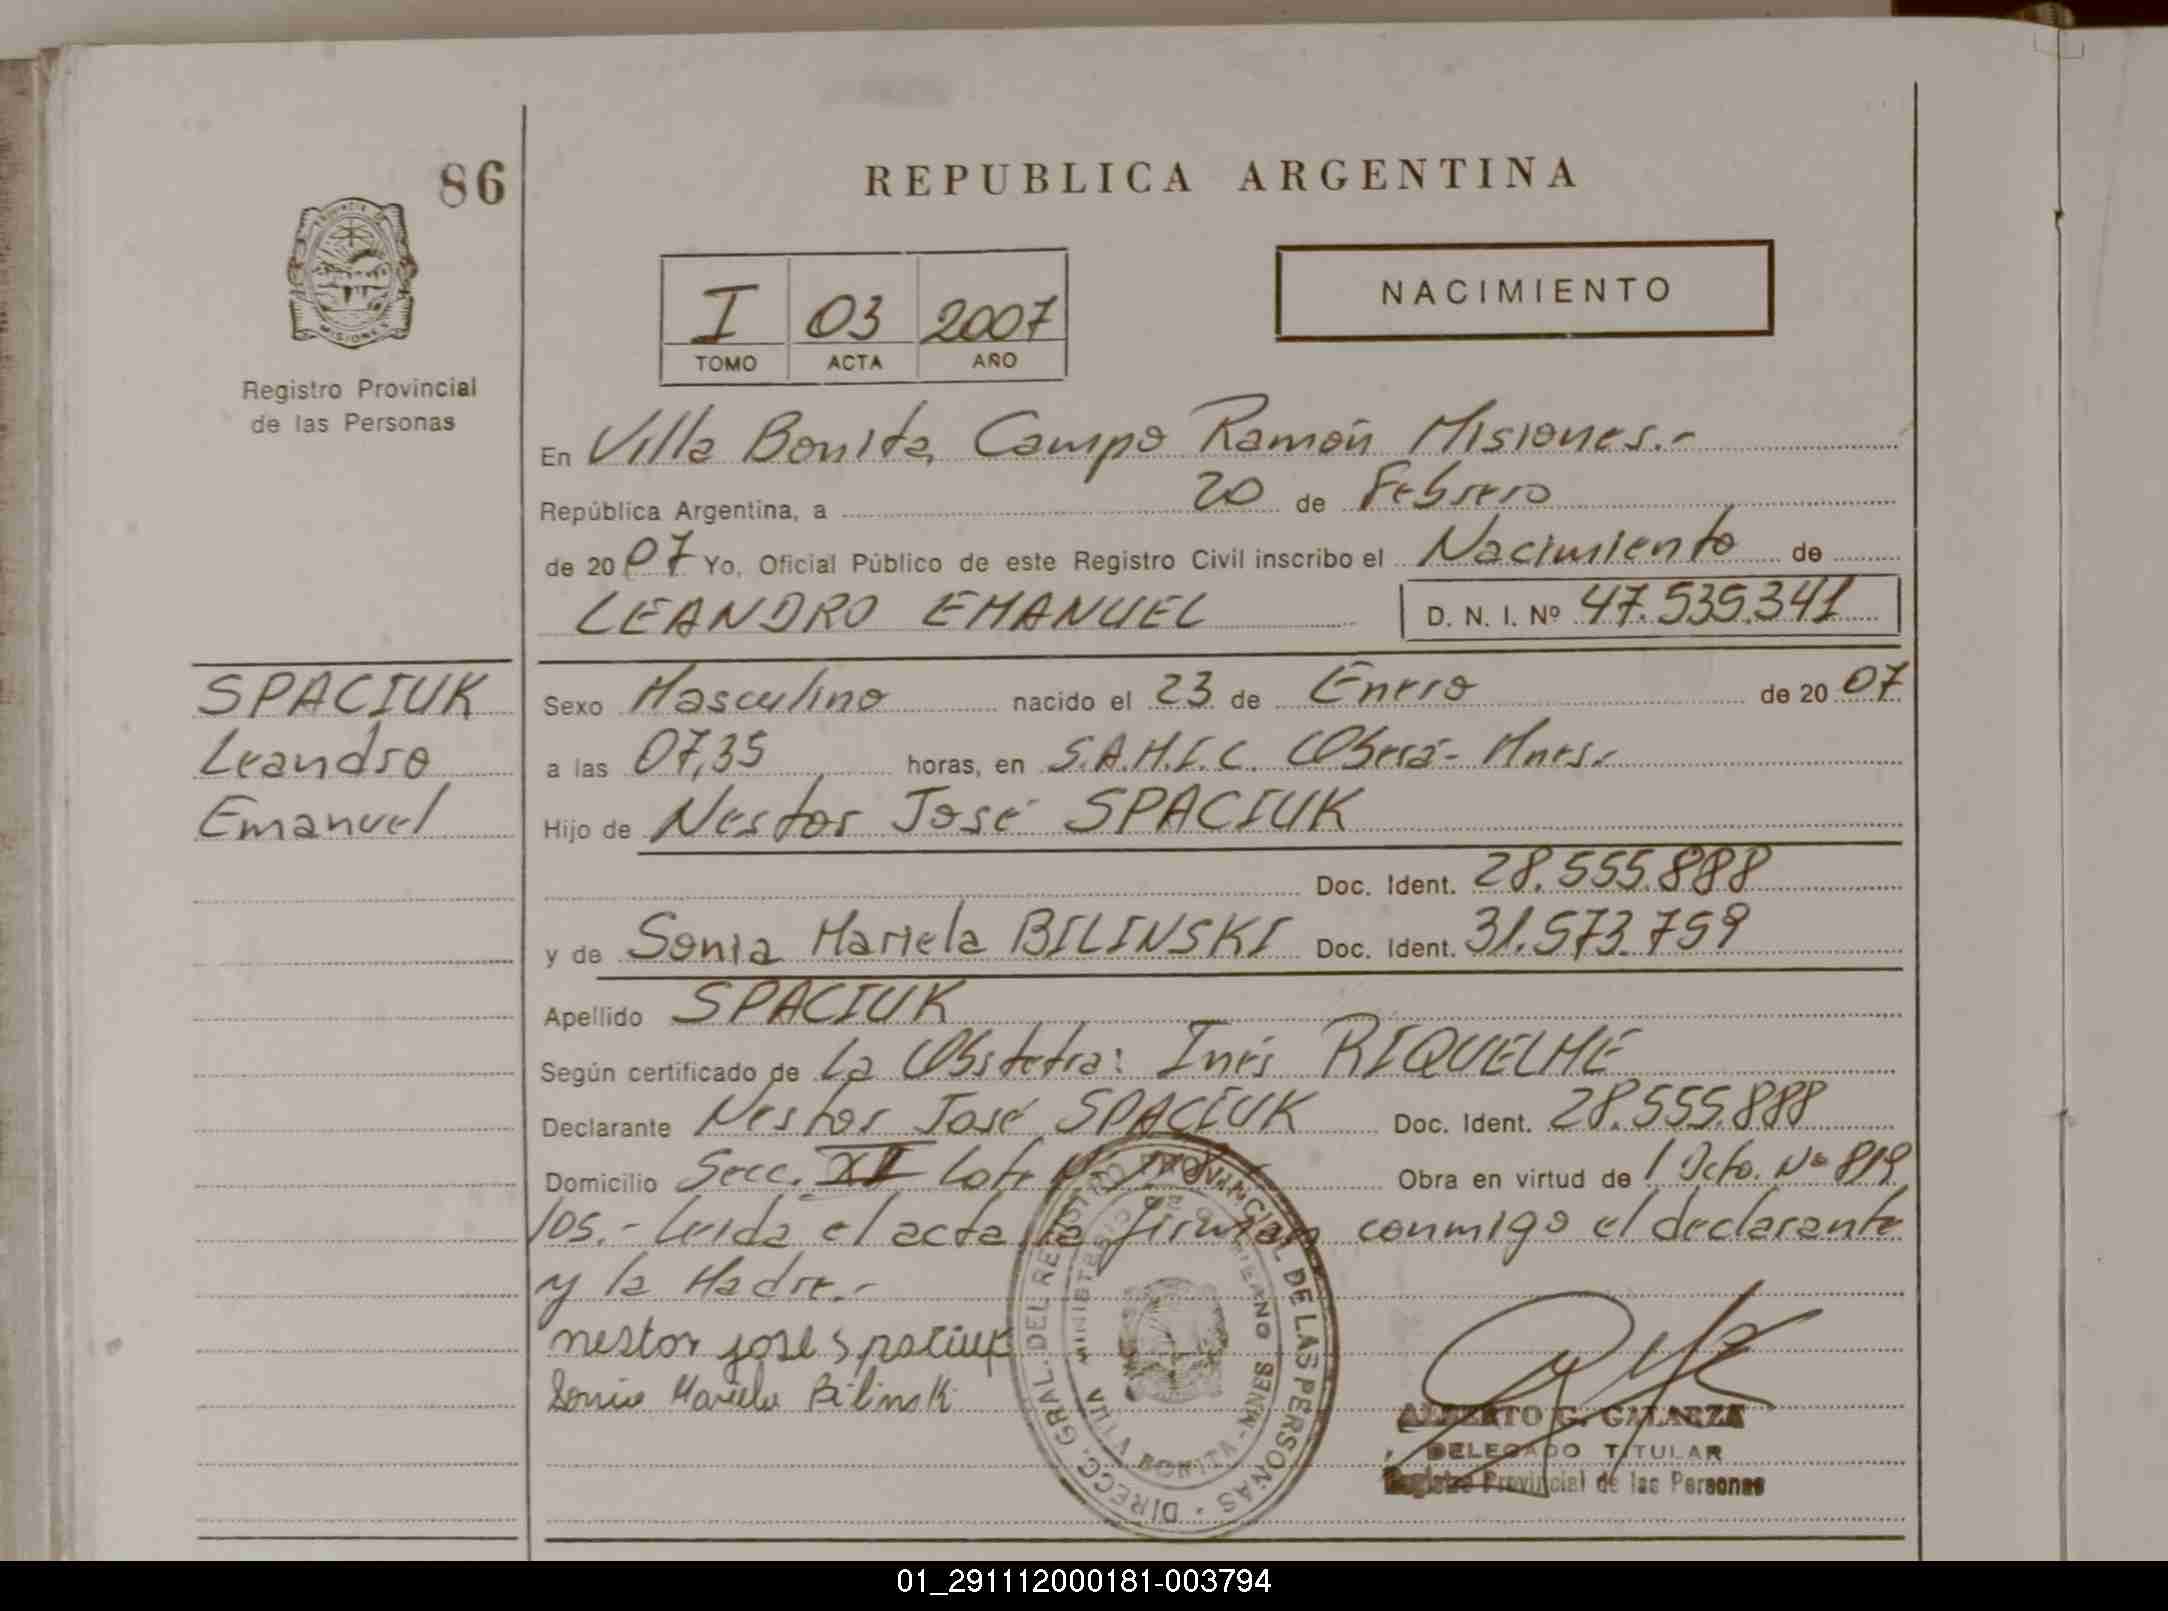 86
REPUBLICA ARGENTINA
PROVINCIA DE
MISIONES
Registro Provincial
de las Personas
I 03 2007
TOMO ACTA AÑO
NACIMIENTO
En Villa Bonita, Campo Ramón Misiones.-
República Argentina, a 20 de Febrero
de 2007 Yo, Oficial Público de este Registro Civil inscribo el Nacimiento de
LEANDRO EMANUEL D. N. I. Nº 47.535.341
SPACIUK
Leandro
Emanuel
Sexo Masculino nacido el 23 de Enero de 2007
a las 07,35 horas, en S.A.M.I.C. Oberá - Mnes.-
Hijo de Nestor José SPACIUK
Doc. Ident. 28.555.888
y de Sonia Mariela BILINSKI Doc. Ident. 31.573.759
Apellido SPACIUK
Según certificado de La Obstetra: Inés RIQUELME
Declarante Nestor José SPACIUK Doc. Ident. 28.555.888
Domicilio Secc. XI Lote Obra en virtud de Dcto. Nº 819
los.- Leida el acta la firman conmigo el declarante
y la Madre.-
nestor josé Spaciuk
Sonia Mariela Bilinski
DIRECC. GRAL. DEL REGISTRO PROVINCIAL DE LAS PERSONAS
MINISTERIO DE GOBIERNO
VILLA BONITA - MNES
ALBERTO G. GALARZA
DELEGADO TITULAR
Registro Provincial de las Personas
01_291112000181-003794